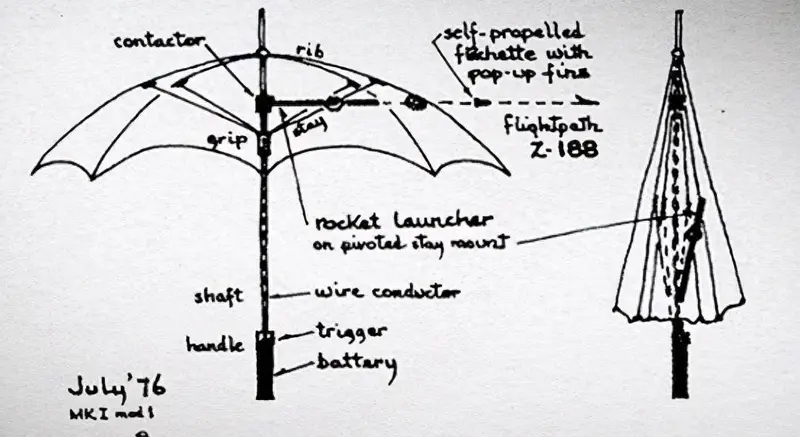 contactor
rib
self-propelled
flechette with
pop-up fins
stay
grip
flightpath
Z-188
rocket launcher
on pivoted stay mount
shaft
wire conductor
trigger
handle
battery
July '76
MK I mod 1